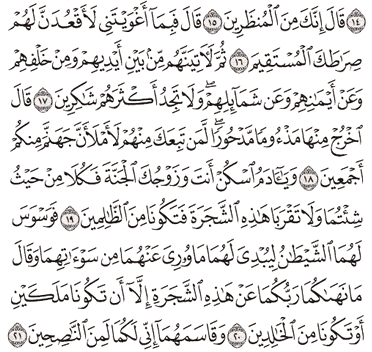 ١٤ قَالَ إِنَّكَ مِنَ ٱلْمُنظَرِينَ ١٥ قَالَ فَبِمَآ أَغْوَيْتَنِى لَأَقْعُدَنَّ لَهُمْ
صِرَٰطَكَ ٱلْمُسْتَقِيمَ ١٦ ثُمَّ لَءَاتِيَنَّهُم مِّنۢ بَيْنِ أَيْدِيهِمْ وَمِنْ خَلْفِهِمْ
وَعَنْ أَيْمَٰنِهِمْ وَعَن شَمَآئِلِهِمْ ۖ وَلَا تَجِدُ أَكْثَرَهُمْ شَٰكِرِينَ ١٧ قَالَ
ٱخْرُجْ مِنْهَا مَذْءُومًا مَّدْحُورًا ۖ لَّمَن تَبِعَكَ مِنْهُمْ لَأَمْلَأَنَّ جَهَنَّمَ مِنكُمْ
أَجْمَعِينَ ١٨ وَيَٰٓـَٔادَمُ ٱسْكُنْ أَنتَ وَزَوْجُكَ ٱلْجَنَّةَ فَكُلَا مِنْ حَيْثُ
شِئْتُمَا وَلَا تَقْرَبَا هَٰذِهِ ٱلشَّجَرَةَ فَتَكُونَا مِنَ ٱلظَّٰلِمِينَ ١٩ فَوَسْوَسَ
لَهُمَا ٱلشَّيْطَٰنُ لِيُبْدِىَ لَهُمَا مَا وُۥرِىَ عَنْهُمَا مِن سَوْءَٰتِهِمَا وَقَالَ
مَا نَهَىٰكُمَا رَبُّكُمَا عَنْ هَٰذِهِ ٱلشَّجَرَةِ إِلَّآ أَن تَكُونَا مَلَكَيْنِ
أَوْ تَكُونَا مِنَ ٱلْخَٰلِدِينَ ٢٠ وَقَاسَمَهُمَآ إِنِّى لَكُمَا لَمِنَ ٱلنَّٰصِحِينَ ٢١